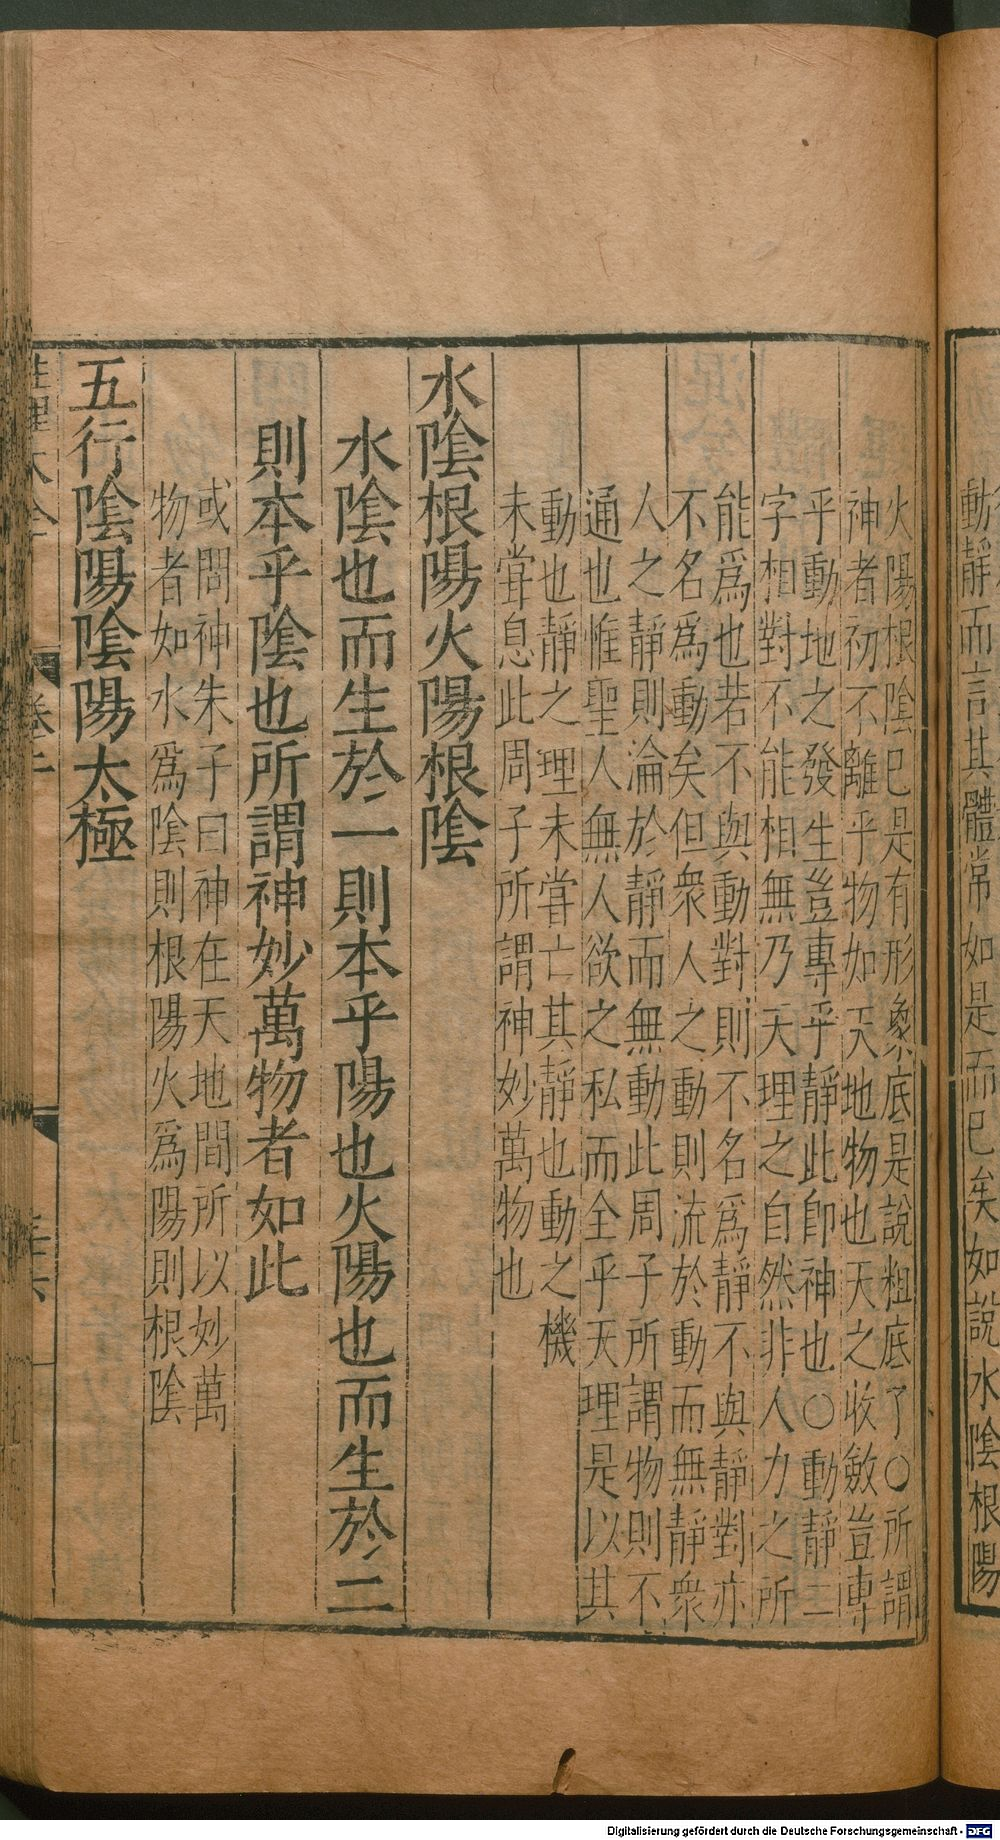 動靜而言其體常如是而已矣如說水陰根陽
火陽根陰已是有形象底是說粗底了○所謂
神者初不離乎物如天地物也天之收斂豈專
乎動地之發生豈專乎靜此即神也○動靜二
字相對不能相無乃天理之自然非人力之所
能為也若不與動對則不名為靜不與靜對亦
不名為動矣但衆人之動則流於動而無靜衆
人之靜則淪於靜而無動此周子所謂物則不
通也惟聖人無人欲之私而全乎天理是以其
動也靜之理未嘗亡其靜也動之機
未嘗息此周子所謂神妙萬物也
水陰根陽火陽根陰
水陰也而生於一則本乎陽也火陽也而生於二
則本乎陰也所謂神妙萬物者如此
或問神朱子曰神在天地間所以妙萬
物者如水為陰則根陽火為陽則根陰
五行陰陽陰陽太極
性理大全
卷二
Digitalisierung gefördert durch die Deutsche Forschungsgemeinschaft - DFG